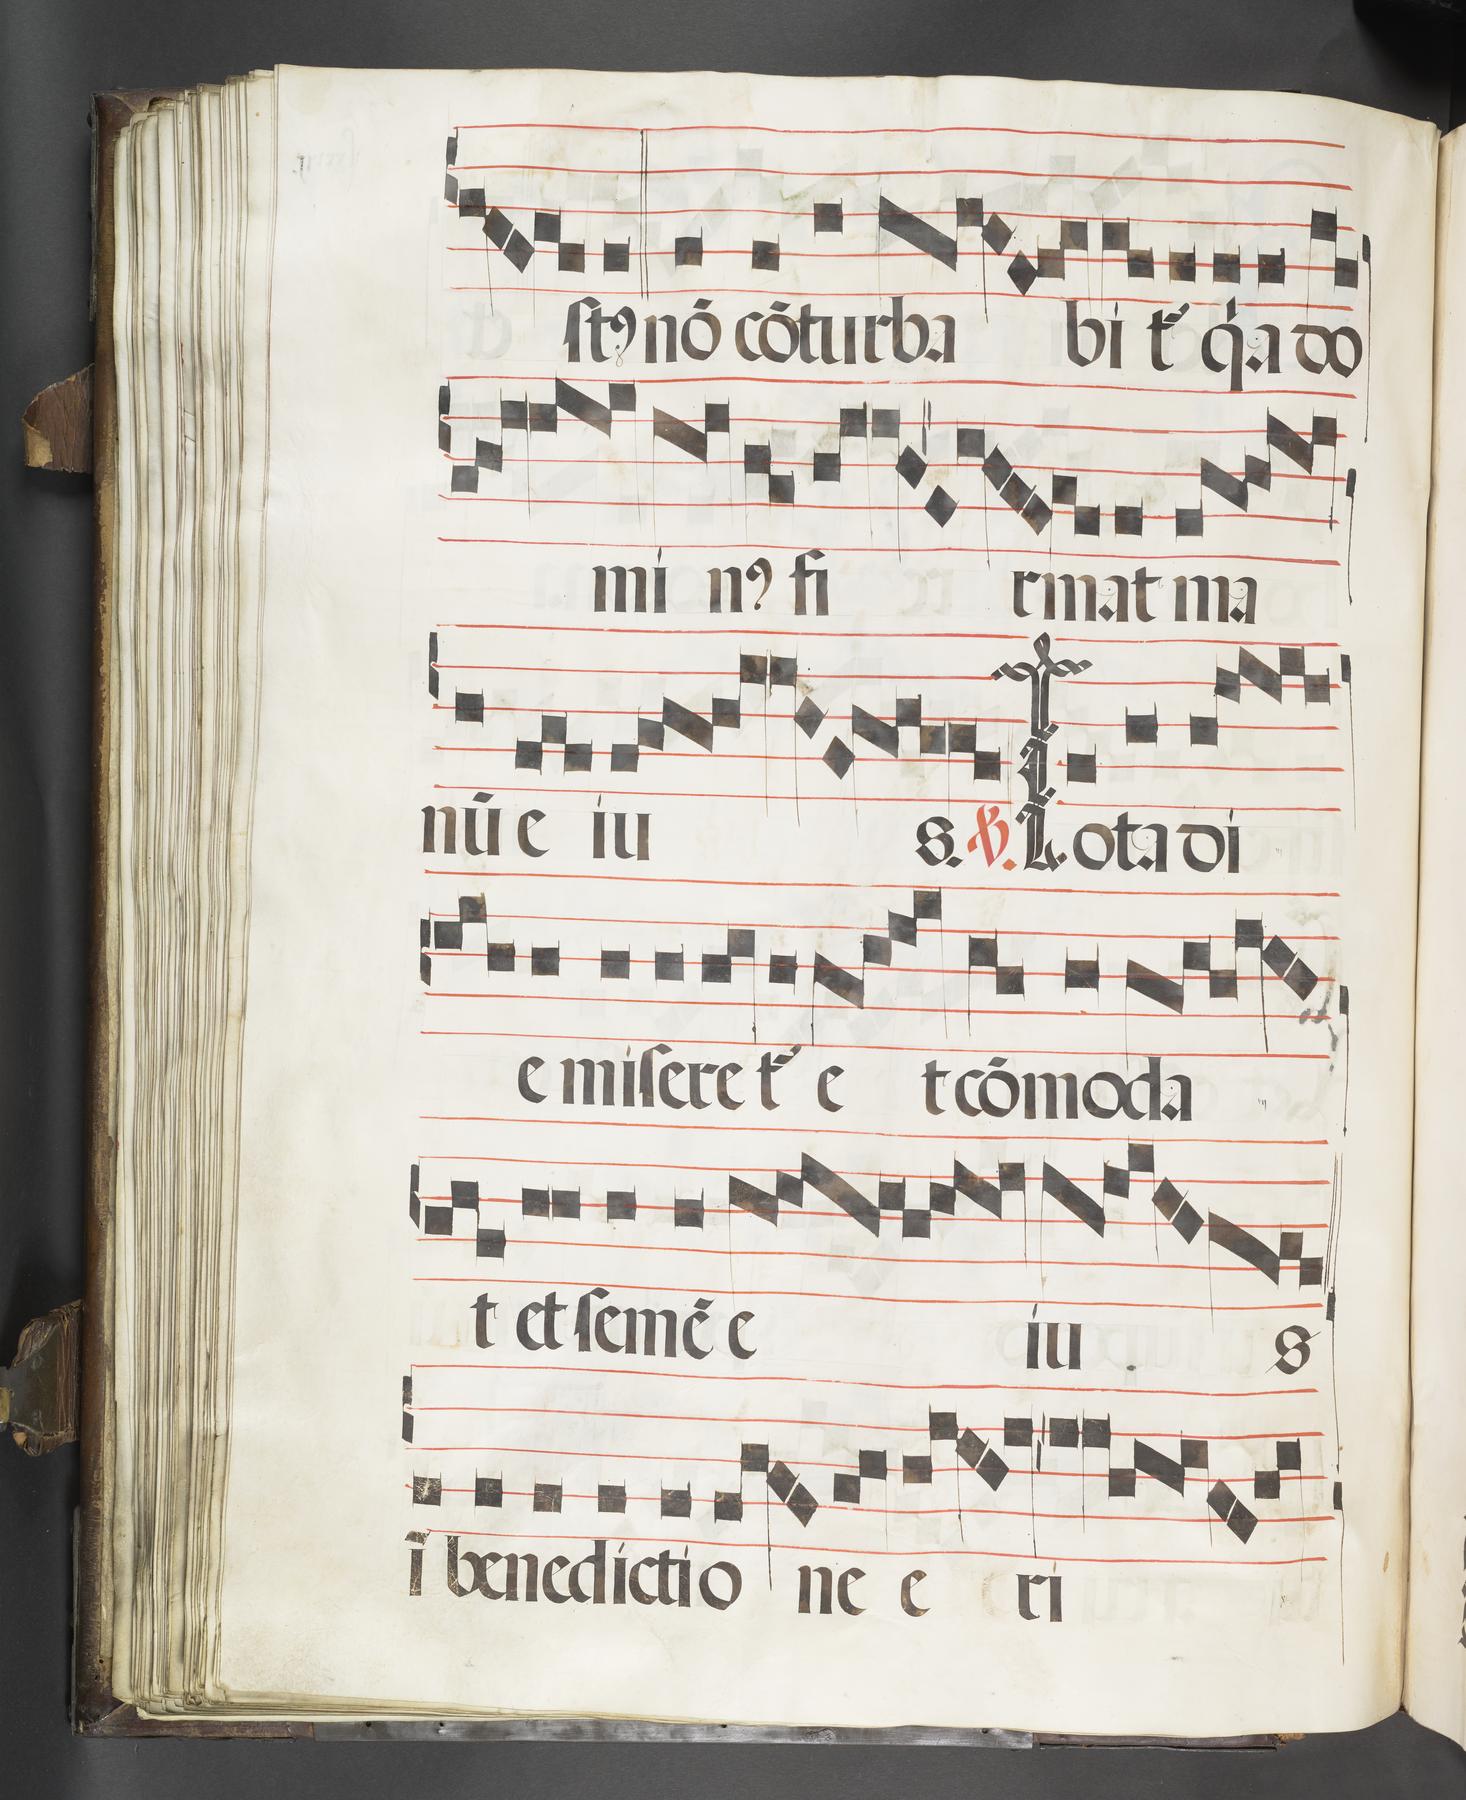 stꝰ nō cōturba bi tͬ q̇a do
mi nꝰ fi rmat ma
nū e iu s. ℣. Tota di
e misere tͬ e t cōmoda
t et semē e iu s
ī benedictio ne e ri